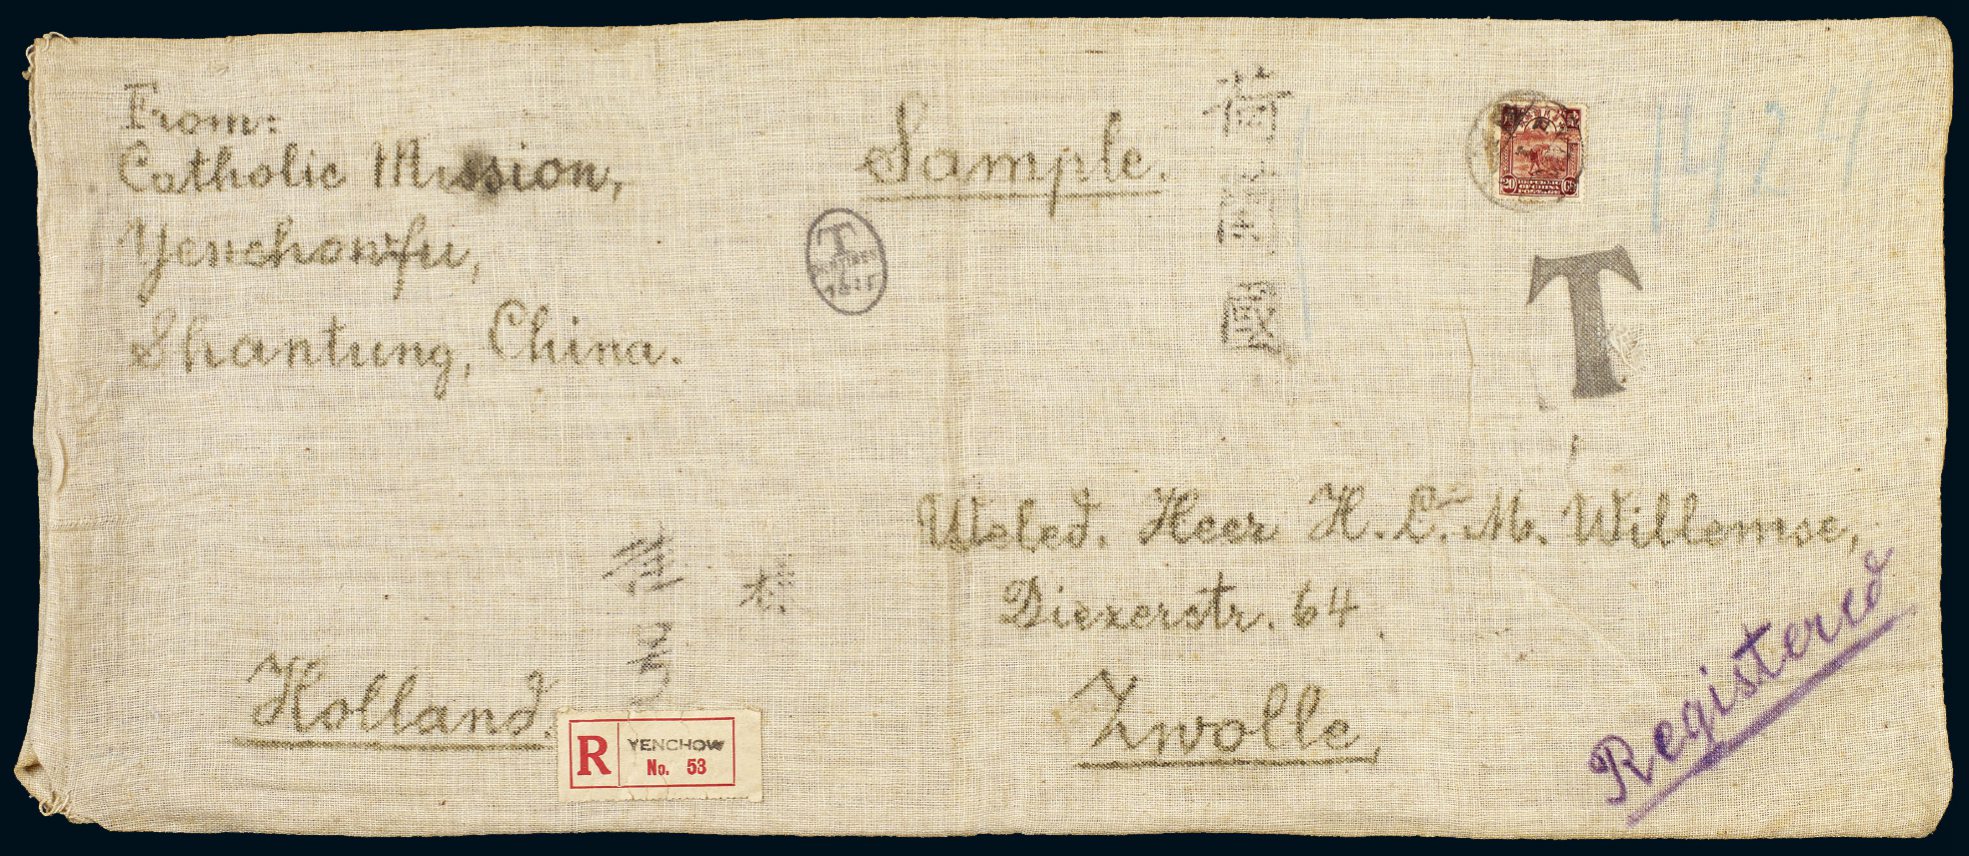 From:
Catholic Mission,
Yenchowfu,
Shantung, China.
Sample.
荷
蘭
國
T
1424
20 Cts
REPUBLIC
OF CHINA
T
Weled. Heer H. L. M. Willemse,
Diezerstr. 64
Zwolle,
Holland.
R YENCHOW
No. 53
Registered